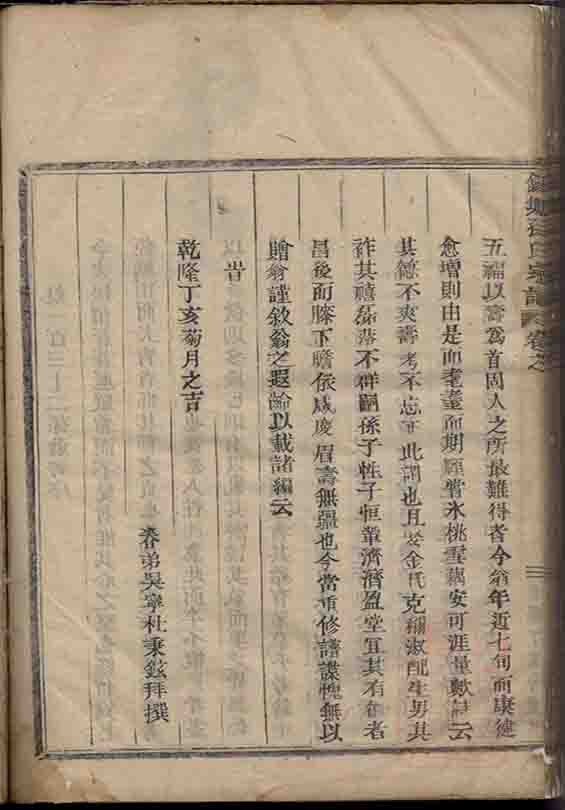 氏宗譜 卷之
五福以壽爲首固人之所最難得者今翁年近七旬而康健
愈增則由是而耄耋而期頤嘗氷桃雪藕安可涯量歟詩云
其德不爽壽考不忘正此謂也且娶金氏克稱淑配生男其
祚其禧磊落不群嗣孫子性子恒輩濟濟盈堂宜其有
者
昌後而膝下瞻依咸慶眉壽無疆也今當重修譜諜愧無以
贈翁謹敘翁之遐齡以載諸編云
旹
乾隆丁亥菊月之吉
眷弟吳寧杜秉鉉拜撰